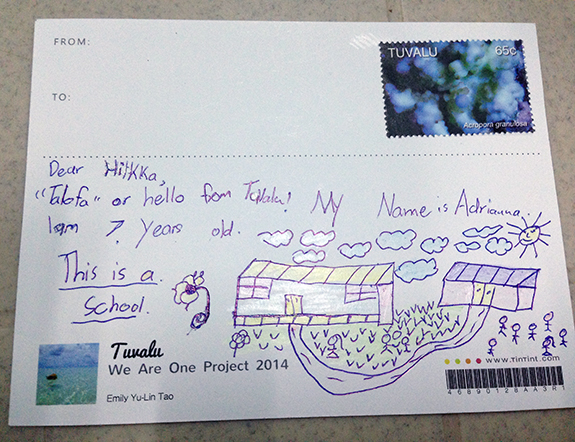 FROM:
TUVALU 65c
TO:
Acropora granulosa
Dear Hilkka,
"Talofa" or hello from Tuvalu! My Name is Adrianna.
I am 7 years old.
This is a
School.
Tuvalu
We Are One Project 2014
www.tintint.com
Emily Yu-Lin Tao
46890128AA3R1